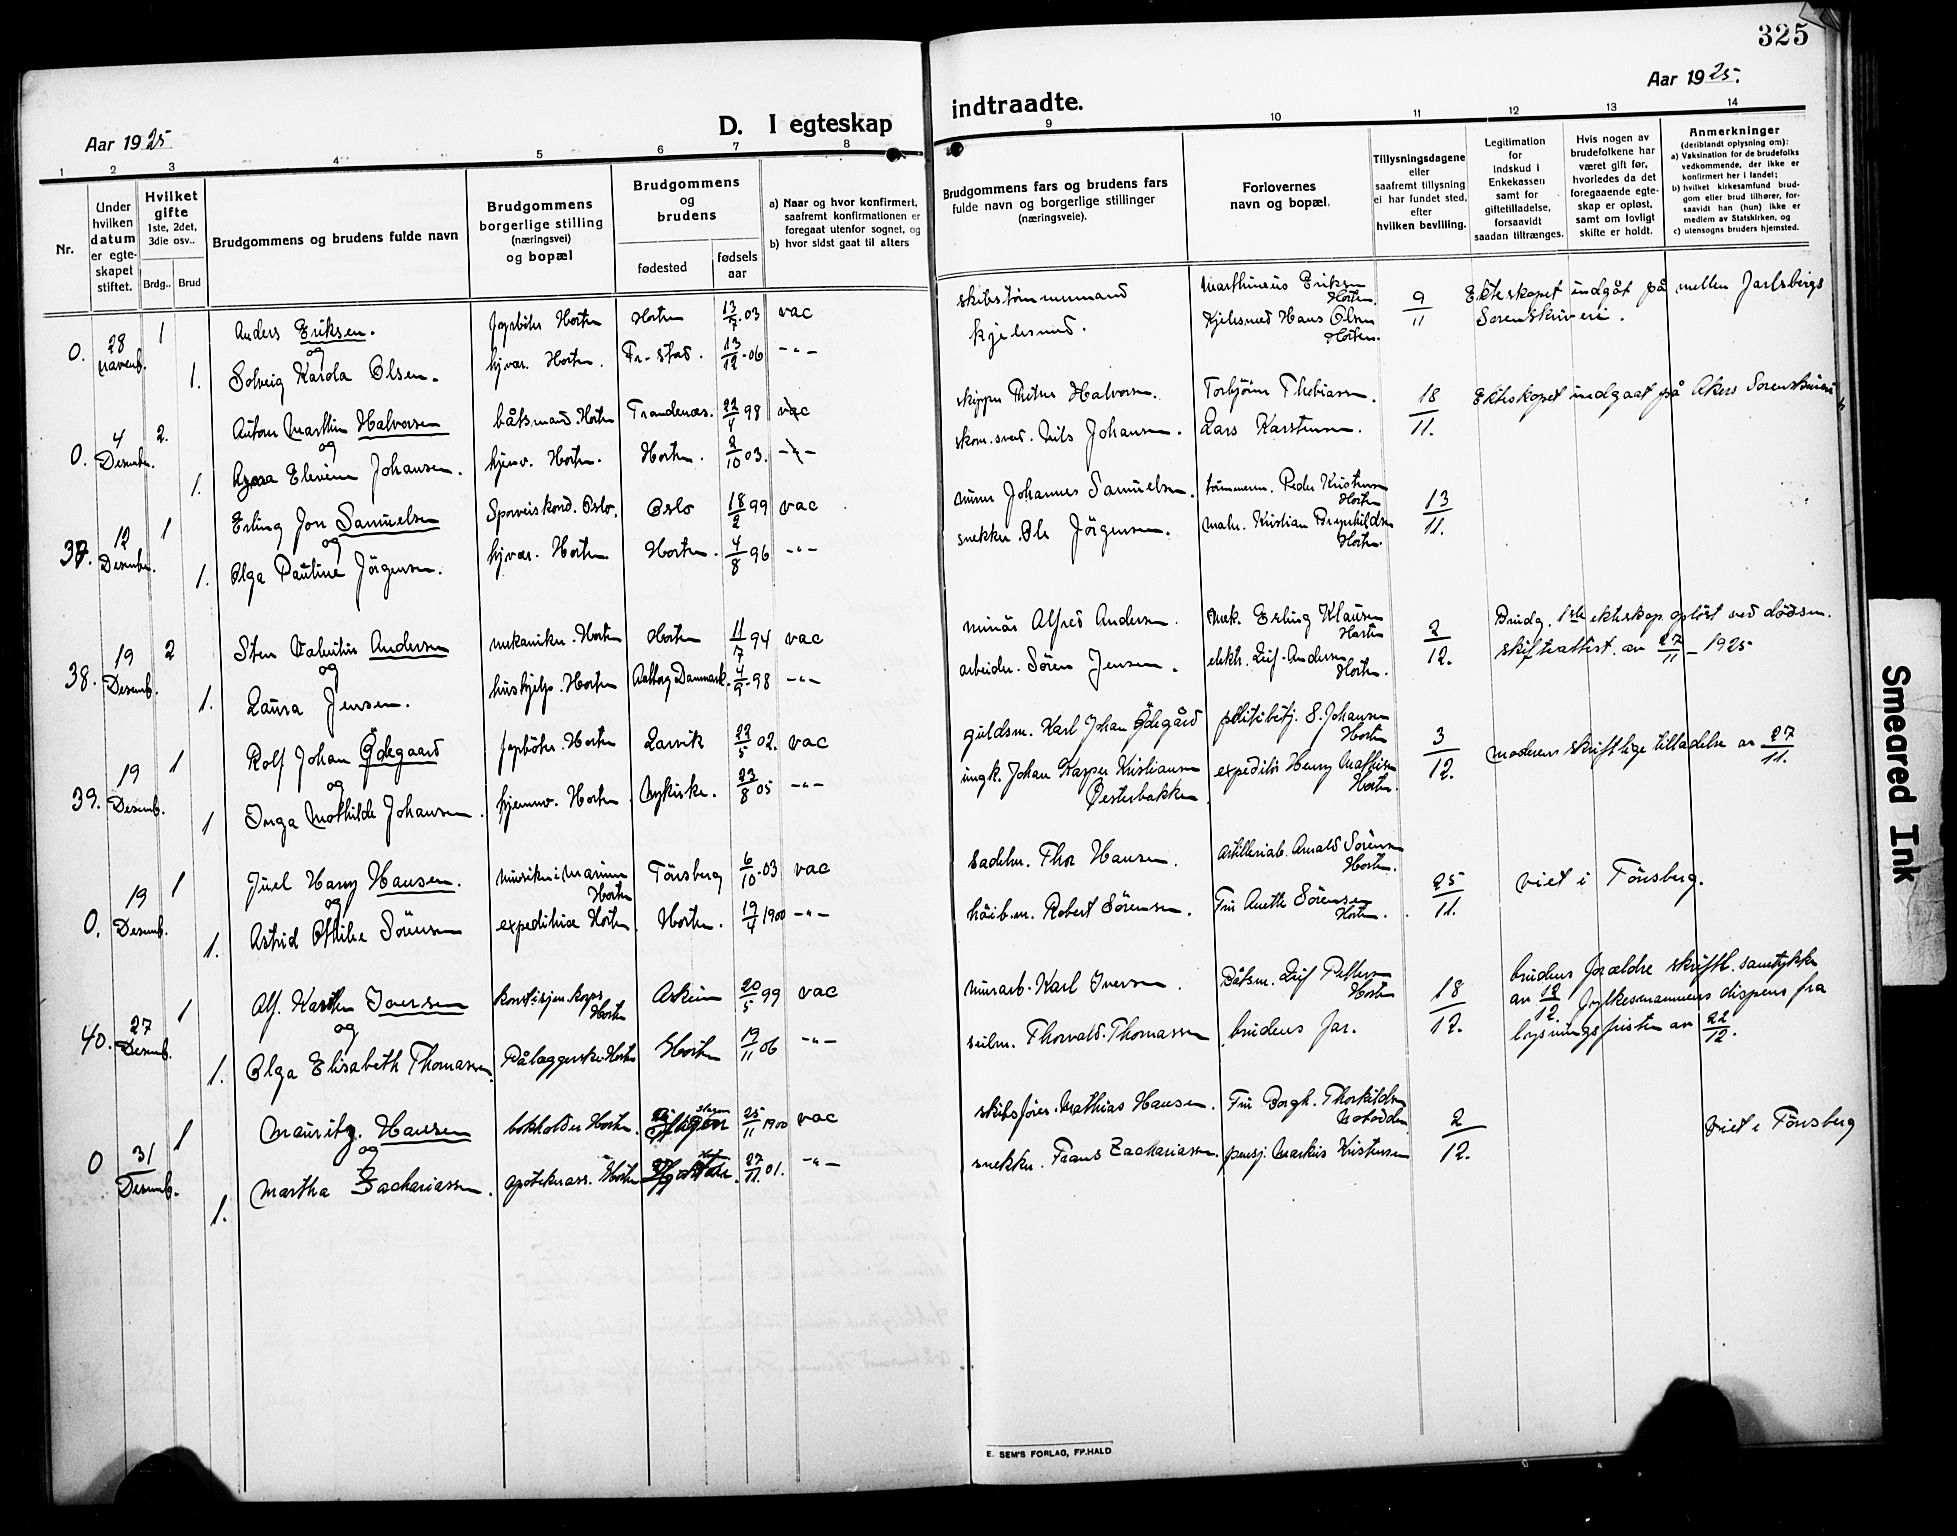 325
Aar 1925
D. I egteskap
indtraadte.
Aar 1925.
1 2 3 4 5 6 7 8 9 10 11 12 13 14
Nr.
Under
hvilken
datum
er egte-
skapet
stiftet.
Hvilket
gifte
1ste, 2det,
3die osv..
Brdg.. Brud
Brudgommens og brudens fulde navn
Brudgommens
borgerlige stilling
(næringsvei)
og bopæl
Brudgommens
og
brudens
fødested
fødsels
aar
a) Naar og hvor konfirmert,
saafremt konfirmationen er
foregaat utenfor sognet, og
b) hvor sidst gaat til alters
Brudgommens fars og brudens fars
fulde navn og borgerlige stillinger
(næringsveie).
Forlovernes
navn og bopæl.
Tillysningsdagene
eller
saafremt tillysning
ei har fundet sted,
efter
hvilken bevilling.
Legitimation
for
indskud i
Enkekassen
samt for
giftetilladelse,
forsaavidt
saadan tiltrænges.
Hvis nogen av
brudefolkene har
været gift før,
hvorledes da det
foregaaende egte-
skap er opløst,
samt om lovligt
skifte er holdt.
Anmerkninger
(deriblandt oplysning om):
a) Vaksination for de brudefolks
vedkommende, der ikke er
konfirmert her i landet;
b) hvilket kirkesamfund brud-
gom eller brud tilhører, for-
saavidt han (hun) ikke er
medlem av Statskirken, og
c) utensogns bruders hjemsted.
0. 28 novemb. 1 Anders Eriksen. Horten Horten 13/7-03 vac skibstømmermand Marthinius Eriksen Horten. 9/11 Ekteskapet indgåt på mellem Jarlsbergs
og
1. Solveig Karola Olsen. hjvær. Horten. Fr-stad. 13/12-06 -"- kjelsmed. Kjelsmed Hans Olsen Horten. Sorenskriveri.
0. 4 Desember. 2. Anton Marthin Halvorsen båtsmand Horten Trondenæs. 22/4 98 vac skipper Petter Halvorsen. Torbjörn Thobiassen. 18/11. Ekteskapet indgaat på Akers Sorenskriveri
og
1. Elevine Johansen. hjemv. Horten. Horten. 2/10 03. -"- Nils Johansen. Lars Karstensen.
37. 12 Desember. 1 Erling Jon Samuelsen Sporveiskond. Oslo. Oslo 18/2 99 vac murer Johannes Samuelsen. tömmerm. Peder Kristensen Horten 13/11.
og
1. Olga Pauline Jörgensen. hjvær. Horten. Horten. 4/8 96 -"- snekker. Ole Jörgensen. maler. Kristian Brynhildsen Horten.
38. 19 Desemb. 2 Sten Valentin Andersen mekaniker. Horten Horten 11/7 94 vac Alfred Andersen. Mek. Erling Klausen Horten 2/12. Brudg. 1ste ekteskap opløst ved dödsn.
og
1. Laura Jensen. hushjelp. Horten Aalborg Danmark. 4/9-98 -"- arbeider. Sören Jensen. elektr. Leif Andersen Horten. skifteattest. av 27/11 - 1925
39. 19 Desemb. 1 Rolf Johan Ödegaard Horten Larvik 22/5 02. vac guldsm. Karl Johan Ödegård politibetj. S. Johansen Horten 3/12. moderens skriftlige tilladelse av 27/11.
og
1 Inga Mathilde Johansen. hjemmv. Horten. Nykirke. 23/8 05 -"- Johan Kasper Kristiansen Vesterbakken expeditör Henry Mathisen Horten.
0. 19 Desemb. 1 Juel Harry Hansen. musiker i Marinen Horten Tönsberg 6/10-03 vac sadelm. Thor Hansen. Arnold Sörensen Horten. 25/11. viet i Tönsberg.
og
1. Astrid Othilie Sörensen expeditrice Horten. Horten. 19/4 1900 -"- Robert Sörensen. Fru Anette Sörensen Horten.
40. 27 Desemb. 1 Alf. Karsten Iversen Horten Askim 20/5 99 vac murarb. Karl Iversen. Båtsm. Leif Pettersen Horten 18/12. brudens forældre skriftl. samtykke
og
1. Olga Elisabeth Thomassen. Pålæggerske Horten Horten 19/11 06 -"- seilm. Thorvald Thomassen brudens far. av 12/12. Fylkesmannens dispens fra
lysningsfristen av 22/12.
0 31 Desemb. 1 Mauritz. Hansen bokholder Horten. 25/11 1900 vac skibsfører. Mathias Hansen. Fru Borgh. Thorkildsen Notodden 2/12. viet i Tönsberg
og
1. Martha Zachariassen. apotekerass. Horten 27/11. 01. -"- snekker. Frans Zachariassen. pensj. Markus Kristensen
E. SEM'S FORLAG, FR.HALD
Smeared Ink